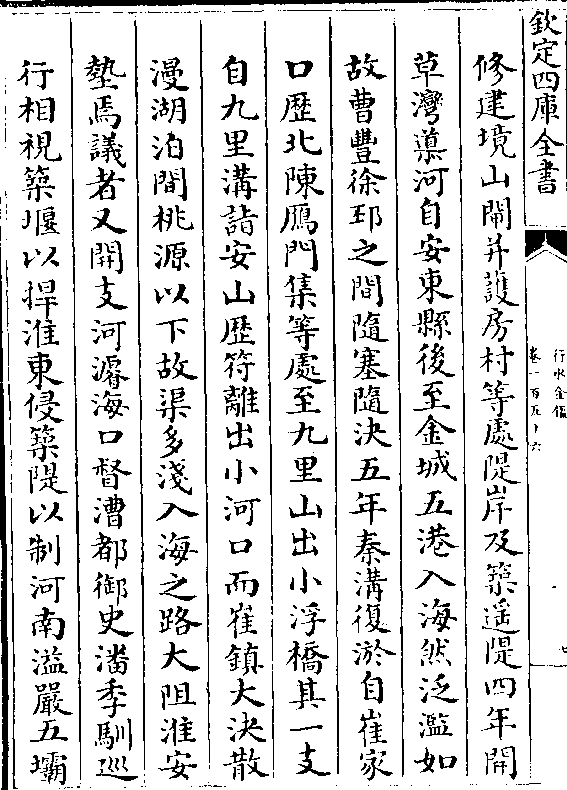 欽定四庫全書
行水金鑑
卷一百五十六
七
修建境山閘并護房村等處隄岸及築遥隄四年開
草灣導河自安東縣後至金城五港入海然泛濫如
故曹豐徐邳之間隨塞隨決五年秦溝復淤自崔家
口歴北陳鴈門集等處至九里山出小浮橋其一支
自九里溝詣安山歴符離出小河口而崔鎮大決散
漫湖泊間桃源以下故渠多淺入海之路大阻淮安
墊焉議者又開支河濬海口督漕都御史潘季馴巡
行相視築堰以捍淮東侵築隄以制河南溢嚴五壩